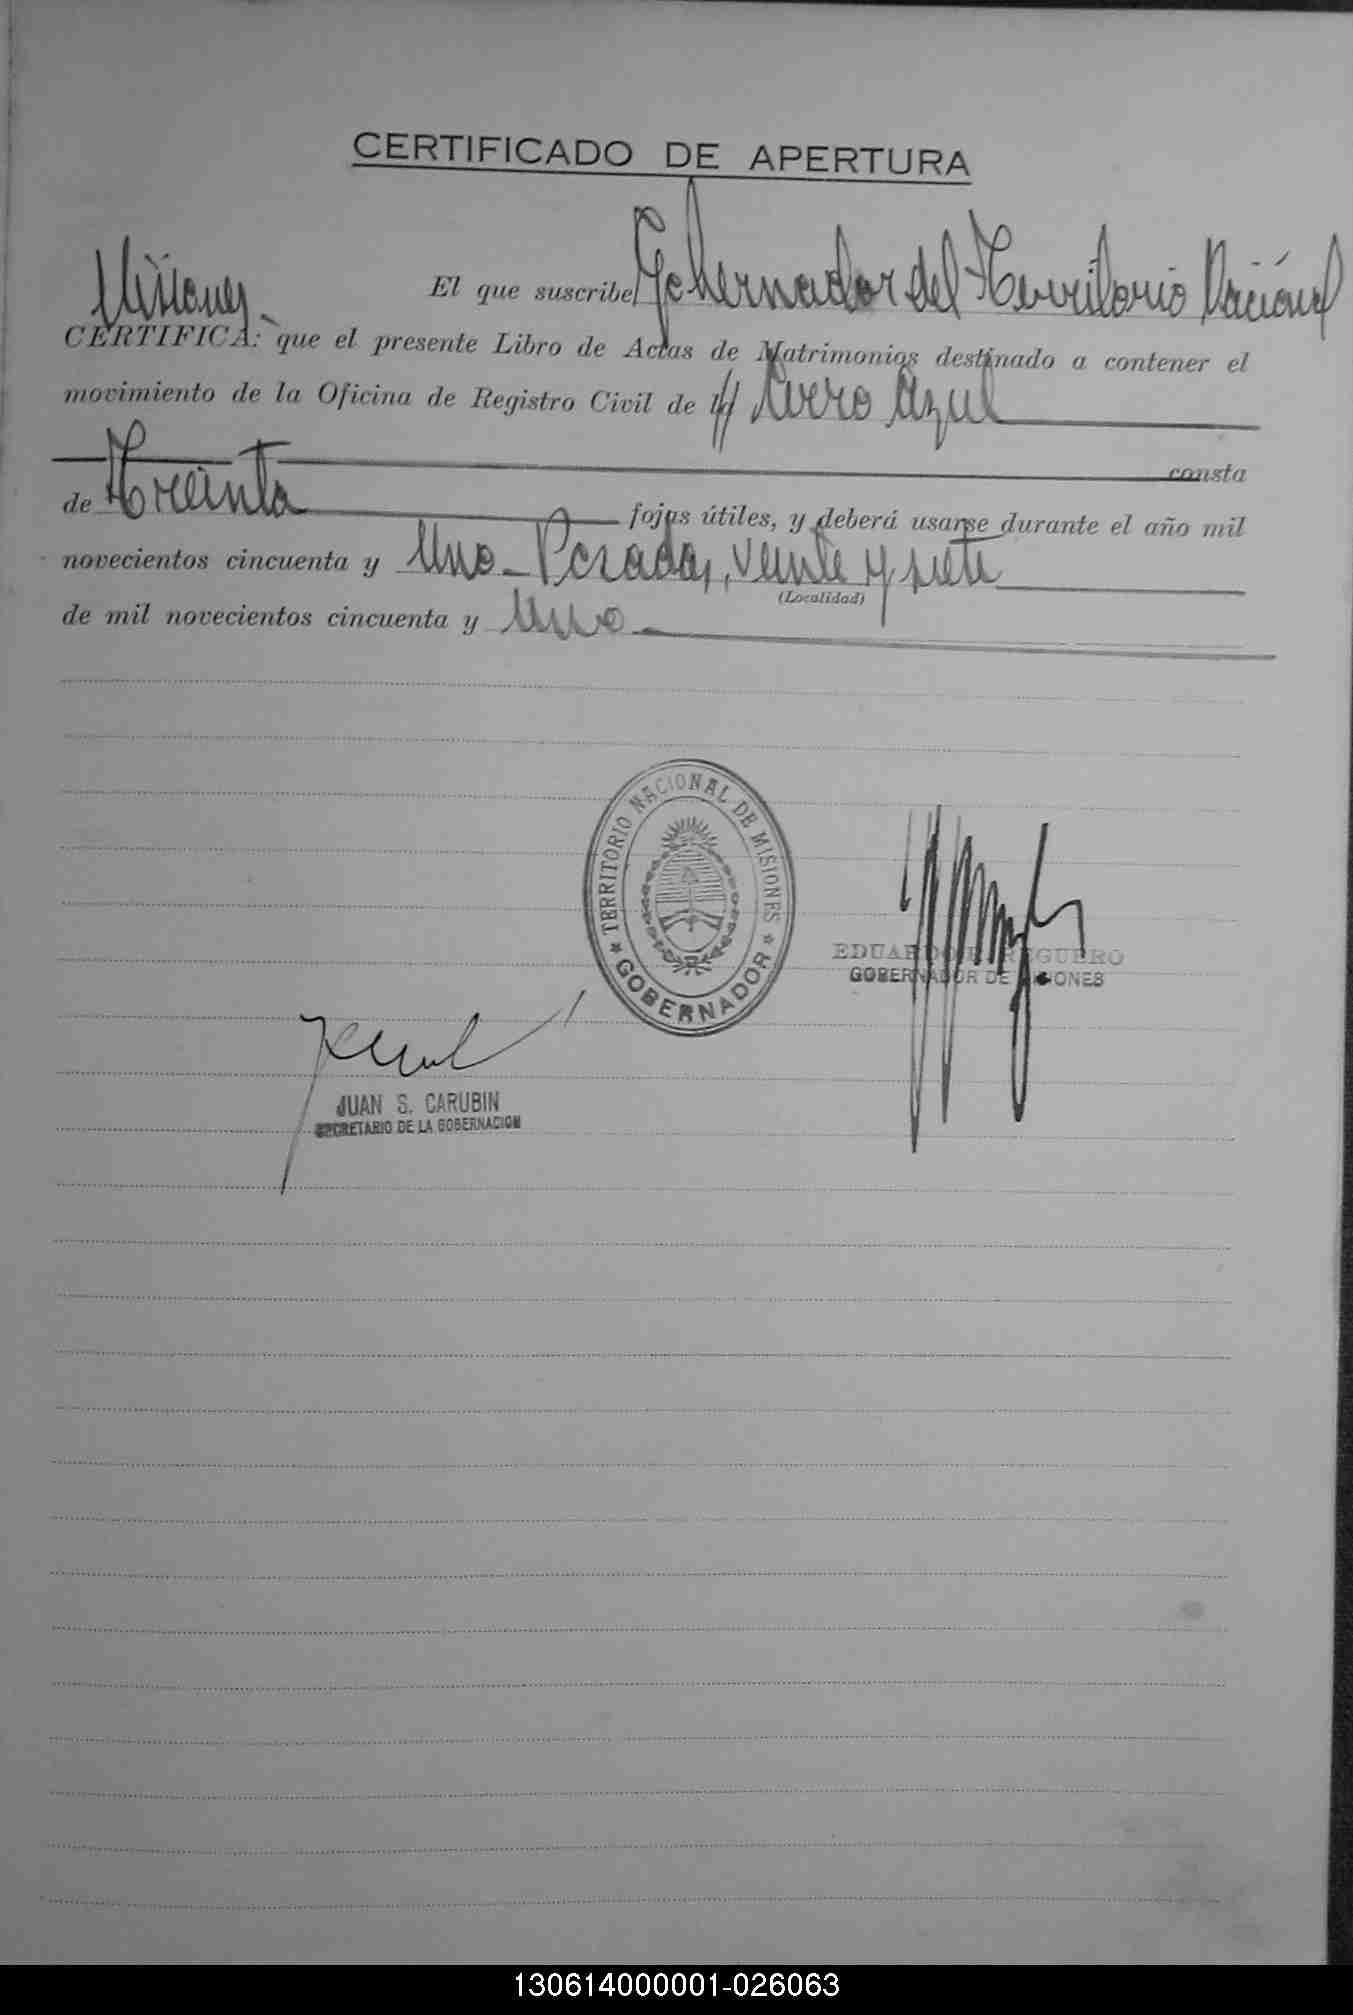 CERTIFICADO DE APERTURA
El que suscribe Gobernador del Territorio Nacional
Misiones
CERTIFICA: que el presente Libro de Actas de Matrimonios destinado a contener el
movimiento de la Oficina de Registro Civil de Azul
consta
de Treinta fojas útiles, y deberá usarse durante el año mil
novecientos cincuenta y Uno - Posadas, veinte y siete
(Localidad)
de mil novecientos cincuenta y Uno
TERRITORIO NACIONAL DE MISIONES
GOBERNADOR
EDUARDO REGUERO
GOBERNADOR DE MISIONES
JUAN S. CARUBIN
SECRETARIO DE LA GOBERNACION
130614000001-026063